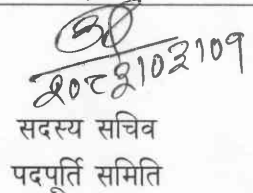 २०८३।०३।०१
सदस्य सचिव
पदपूर्ति समिति